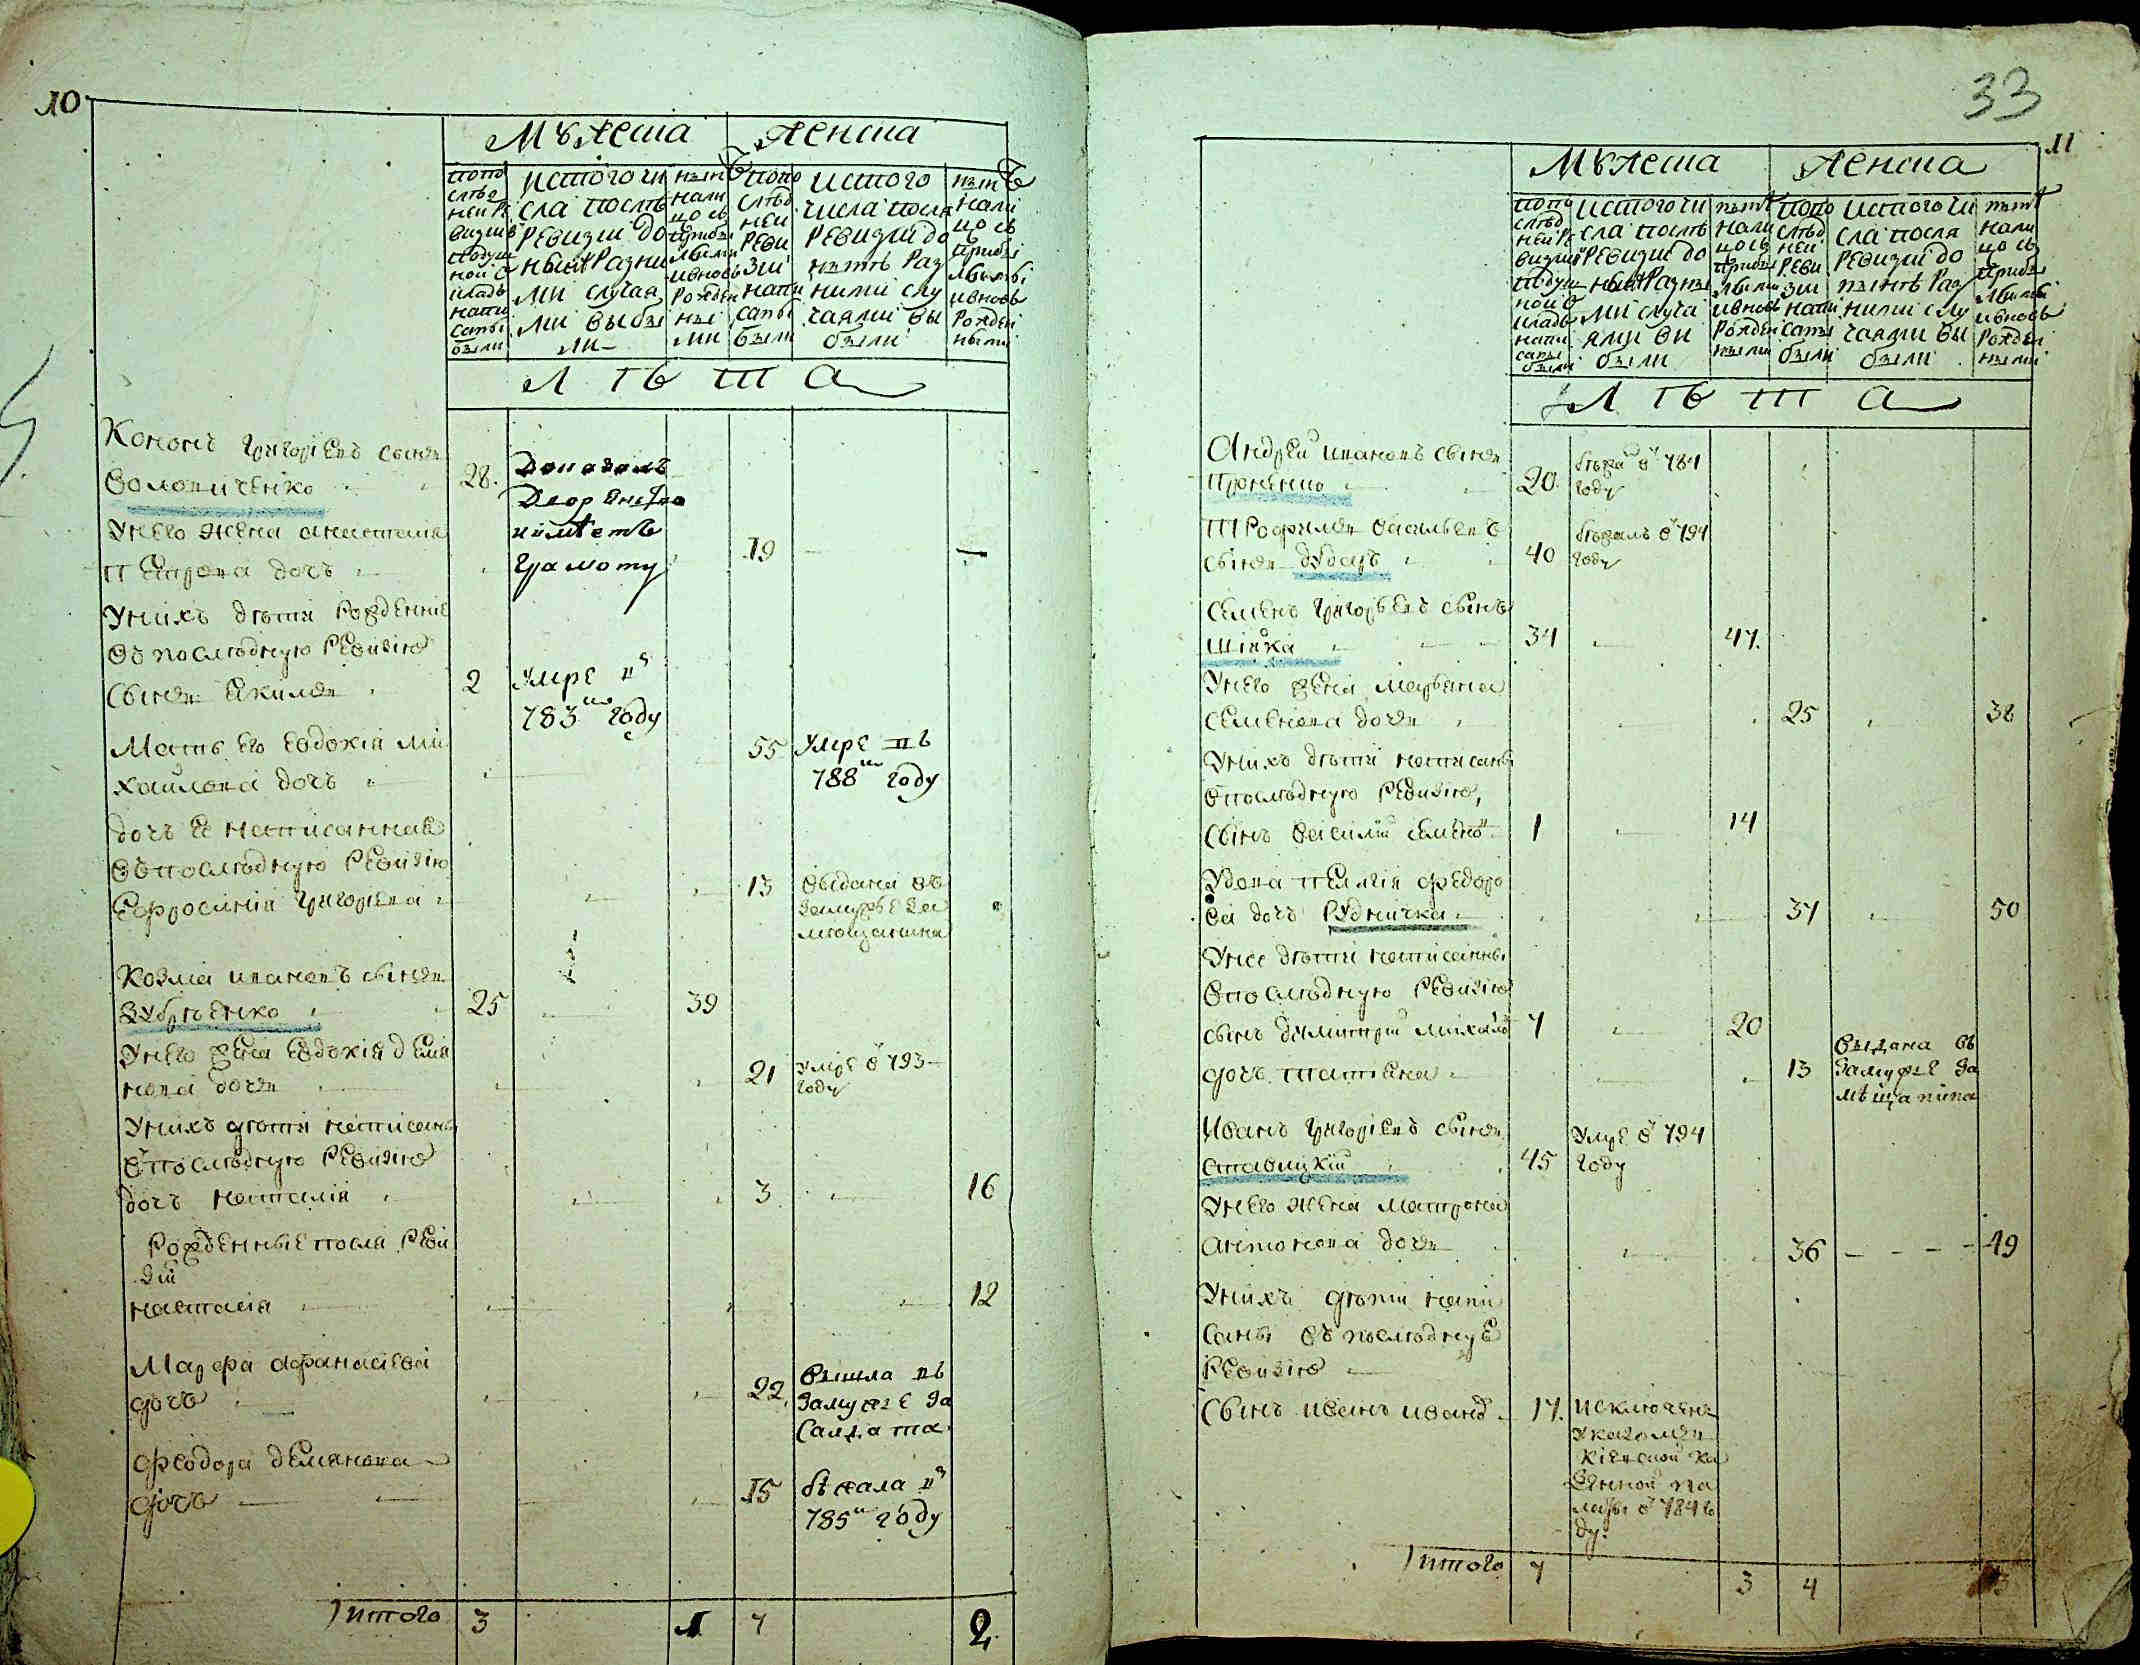 10
Мужеска Женска
попо
слѣд
ней ре
визии
подуш
ной о
кладъ
напи
саны
были
истого чи
сла послѣ
ревизии до
нынѣ разны
ми случая
ми выбы
ли
нынѣ
нали
цо съ
прибы
лыми
ивновь
рожден
ны
ми
попо
слѣд
ней
реви
зии
напи
саны
были
истого
числа посля
ревизии до
нынѣ раз
ними слу
чаями вы
были
нынѣ
нали
цо съ
прибы
лыми
ивновь
рожден
ными
Лѣта
Кононъ григориевъ сынъ
Воловиченко 28. Доказалъ
Дворянство
имѣетъ
грамоту
Унего жена анастасия
дочъ 19
Унихъ дѣти рожденние
въ последную ревизию
Сынъ Екимъ 2 Умре в
783 году
Мать его евдокия ми
хайлова дочъ 55 Умре въ
788 году
дочъ ее написанная
въ последную ревизию
Ефросиния григориева 13 выдана въ
замужье за
мещанина
Козма ивановъ сынъ
Зубрѣенко 25 39
Унего жена евдокия демя
нова дочъ 21 умре в 793
году
Унихъ дѣти написаны
в последную ревизию
дочъ наталия 3 16
Рожденные посля реви
зии
настасия 12
Марфа афанасиева
дочъ 22 вышла въ
замужъе за
салдата
Феодора демянова
дочъ 15 бѣжала в
785 году
Итого 3 1 7 2
33
11
Мужеска Женска
попо
слѣд
ней ре
визии
подуш
ной о
кладъ
напи
саны
были
истого чи
сла послѣ
ревизии до
нынѣ разны
ми случа
ями вы
были
нынѣ
нали
цо съ
прибы
лыми
ивновь
рожден
ными
попо
слѣд
ней
реви
зии
напи
саны
были
истого чи
сла посля
ревизии до
нынѣ раз
ними слу
чаями вы
были
нынѣ
нали
цо съ
прибы
лыми
ивновь
рожден
ными
Лѣта
Андрей ивановъ сынъ
Проненко 20 бежа в 784
году
Трофимъ васильевъ
сынъ дударъ 40 бежалъ в 794
году
Семенъ григорьевъ сынъ
шипка 34 47.
Унего жена марьяна
семенова дочъ 25 38
Унихъ дѣти написаны
в последную ревизию,
сынъ василий семено 1 14
Удова пелагия федоро
ва дочъ рудничка 37 50
Унее дѣти написанны
в последную ревизию
сынъ димитрий михайло 7 20
дочъ татияна 13 выдана въ
замужъе за
мѣщанина
Иванъ григориевъ сынъ
ставицкий 45 умре в 794
году
Унего жена матрона
антонова дочъ 36 49
Унихъ дѣти напи
саны въ последную
ревизию
Сынъ иванъ ивано 17. исключенъ
указомъ
киевской ка
зенной па
латы в 784 го
ду.
Итого 7 3 4 3